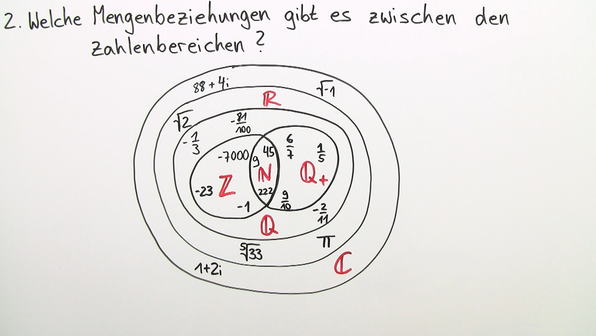 2. Welche Mengenbeziehungen gibt es zwischen den
Zahlenbereichen?
88 + 4i
√-1
ℝ
√2
-81/100
-1/3
-7000
9
45
6/7
1/5
-23
ℤ
ℕ
ℚ+
-1
222
9/10
-2/11
ℚ
π
⁵√33
1+2i
ℂ